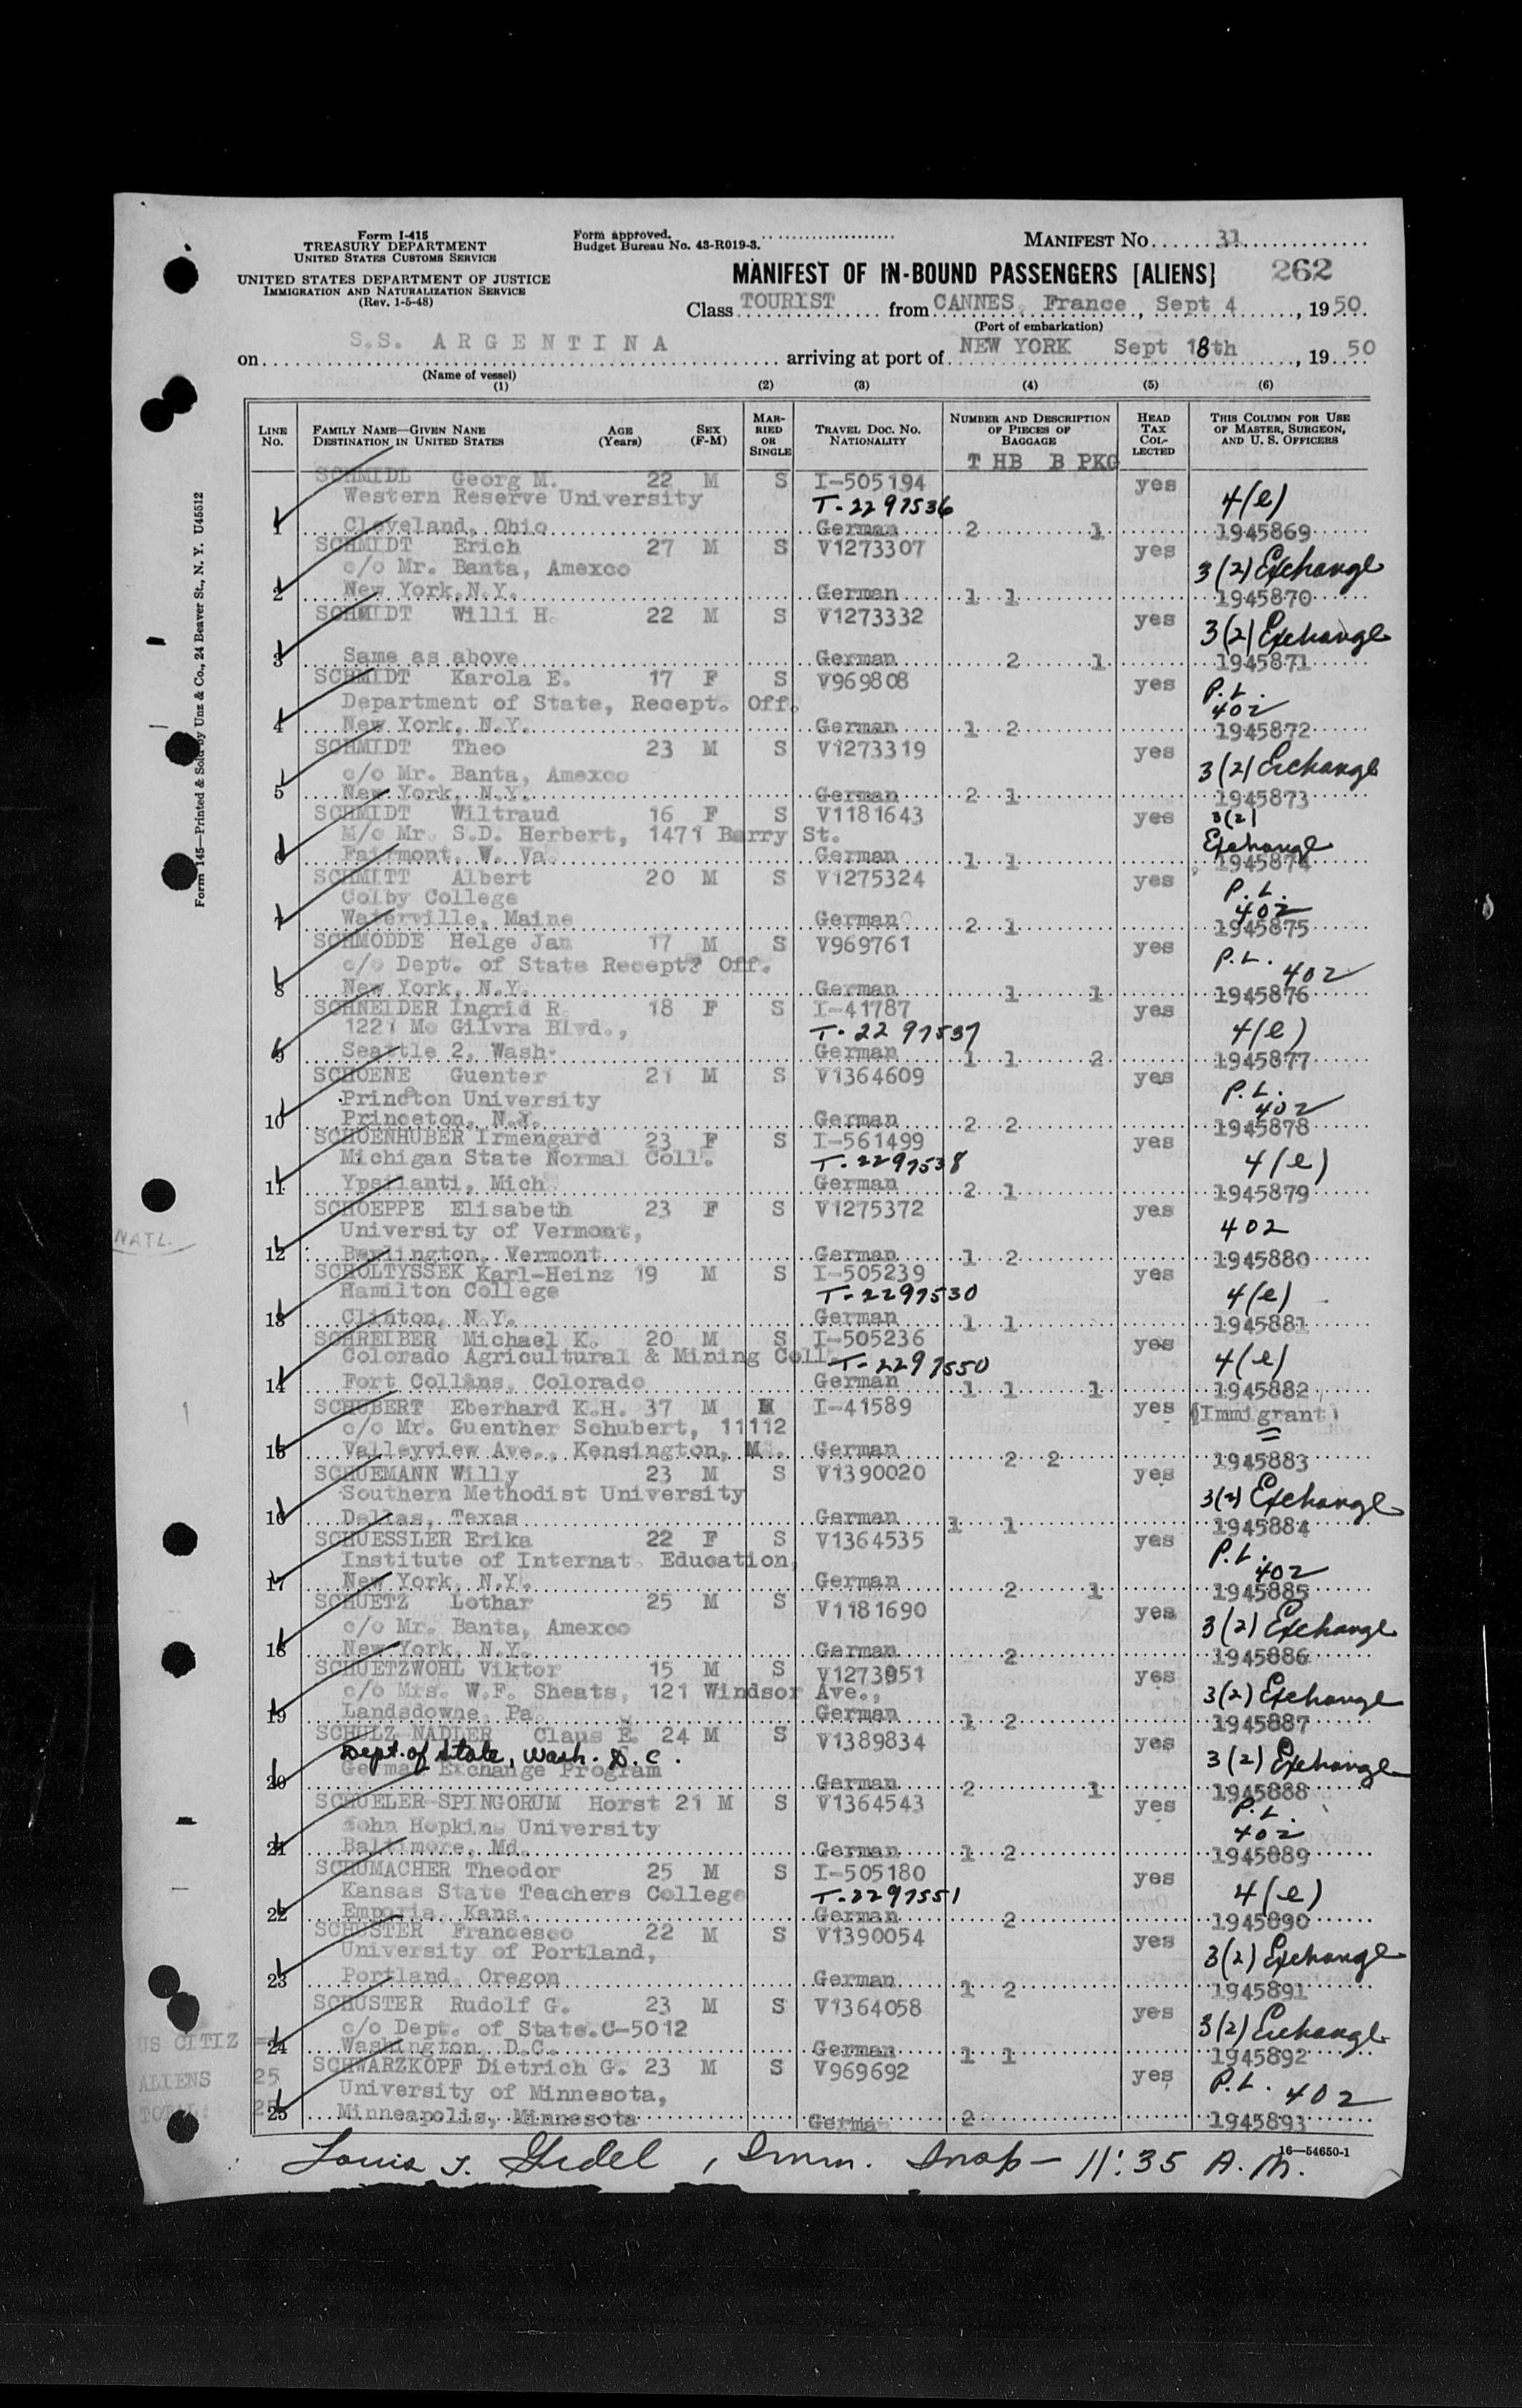 Form I-415
TREASURY DEPARTMENT
UNITED STATES CUSTOMS SERVICE
UNITED STATES DEPARTMENT OF JUSTICE
IMMIGRATION AND NATURALIZATION SERVICE
(Rev. 1-5-48)
Form approved.
Budget Bureau No. 43-R019-3.
MANIFEST NO. 31
MANIFEST OF IN-BOUND PASSENGERS [ALIENS] 262
Class TOURIST from CANNES, France, Sept 4, 1950
(Port of embarkation)
on S.S. ARGENTINA arriving at port of NEW YORK Sept 18th, 1950
(Name of vessel)
(1) (2) (3) (4) (5) (6)
LINE NO. FAMILY NAME—GIVEN NANE DESTINATION IN UNITED STATES AGE (Years) SEX (F-M) MARRIED OR SINGLE TRAVEL DOC. NO. NATIONALITY NUMBER AND DESCRIPTION OF PIECES OF BAGGAGE HEAD TAX COLLECTED THIS COLUMN FOR USE OF MASTER, SURGEON, AND U. S. OFFICERS
T HB B PKG
SCHMIDL Georg M. 22 M S I-505194 yes
Western Reserve University T-2297536 4(e)
1 Cleveland, Ohio German 2 1 1945869
SCHMIDT Erich 27 M S V1273307 yes
c/o Mr. Banta, Amexco 3(2) Exchange
2 New York, N.Y. German 1 1 1945870
SCHMIDT Willi H. 22 M S V1273332 yes
3(2) Exchange
3 Same as above German 2 1 1945871
SCHMIDT Karola E. 17 F S V969808 yes
Department of State, Recept. Off. P.L. 402
4 New York, N.Y. German 1 2 1945872
SCHMIDT Theo 23 M S V1273319 yes
c/o Mr. Banta, Amexco 3(2) Exchange
5 New York, N.Y. German 2 1 1945873
SCHMIDT Wiltraud 16 F S V1181643 yes 3(2)
M/o Mr. S.D. Herbert, 1471 Barry St. Exchange
6 Fairmont, W. Va. German 1 1 1945874
SCHMITT Albert 20 M S V1275324 yes
Colby College P.L. 402
7 Waterville, Maine German 2 1 1945875
SCHMODDE Helge Jan 17 M S V969761 yes
c/o Dept. of State Recept. Off. P.L. 402
8 New York, N.Y. German 1 1 1945876
SCHNEIDER Ingrid R. 18 F S I-41787 yes
1221 Mc Gilvra Blvd., T-2297537 4(e)
9 Seattle 2, Wash. German 1 1 2 1945877
SCHOENE Guenter 21 M S V1364609 yes
Princeton University P.L. 402
10 Princeton, N.J. German 2 2 1945878
SCHOENHUBER Irmengard 23 F S I-561499 yes
Michigan State Normal Coll. T-2297538 4(e)
11 Ypsilanti, Mich. German 2 1 1945879
SCHOEPPE Elisabeth 23 F S V1275372 yes
University of Vermont, 402
12 Burlington, Vermont German 1 2 1945880
SCHOLTYSSEK Karl-Heinz 19 M S I-505239 yes
Hamilton College T-2297530 4(e)
13 Clinton, N.Y. German 1 1 1945881
SCHREIBER Michael K. 20 M S I-505236 yes
Colorado Agricultural & Mining Coll. T-2297550 4(e)
14 Fort Collins, Colorado German 1 1 1 1945882
SCHUBERT Eberhard K.H. 37 M M I-41589 yes (Immigrant)
c/o Mr. Guenther Schubert, 11112
15 Valleyview Ave., Kensington, German 2 2 1945883
SCHUEMANN Willy 23 M S V1390020 yes
Southern Methodist University 3(2) Exchange
16 Dallas, Texas German 1 1 1945884
SCHUESSLER Erika 22 F S V1364535 yes
Institute of Internat. Education, P.L. 402
17 New York, N.Y. German 2 1 1945885
SCHUETZ Lothar 25 M S V1181690 yes
c/o Mr. Banta, Amexco 3(2) Exchange
18 New York, N.Y. German 2 1945886
SCHUETZWOHL Viktor 15 M S V1273951 yes
c/o Mrs. W.F. Sheats, 121 Windsor Ave., 3(2) Exchange
19 Landsdowne, Pa. German 1 2 1945887
SCHULZ NADLER Claus E. 24 M S V1389834 yes
Dept. of State, Wash. D.C.
German Exchange Program 3(2) Exchange
20 German 2 1 1945888
SCHUELER-SPINGORUM Horst 21 M S V1364543 yes P.L.
John Hopkins University 402
21 Baltimore, Md. German 1 2 1945889
SCHUMACHER Theodor 25 M S I-505180 yes
Kansas State Teachers College T-2297551 4(e)
22 Emporia, Kans. German 2 1945890
SCHUSTER Francesco 22 M S V1390054 yes
University of Portland, 3(2) Exchange
23 Portland, Oregon German 1 2 1945891
SCHUSTER Rudolf G. 23 M S V1364058 yes
c/o Dept. of State.C-5012 3(2) Exchange
24 Washington, D.C. German 1 1 1945892
SCHWARZKOPF Dietrich G. 23 M S V969692 yes
University of Minnesota, P.L. 402
25 Minneapolis, Minnesota German 2 1945893
NATL.
US CITIZ
ALIENS 25
TOTAL: 25
16—54650-1
Louis J. , Imm. Insp- 11:35 A.M.
Form 145—Printed & Sold by Unz & Co., 24 Beaver St., N. Y. U45512